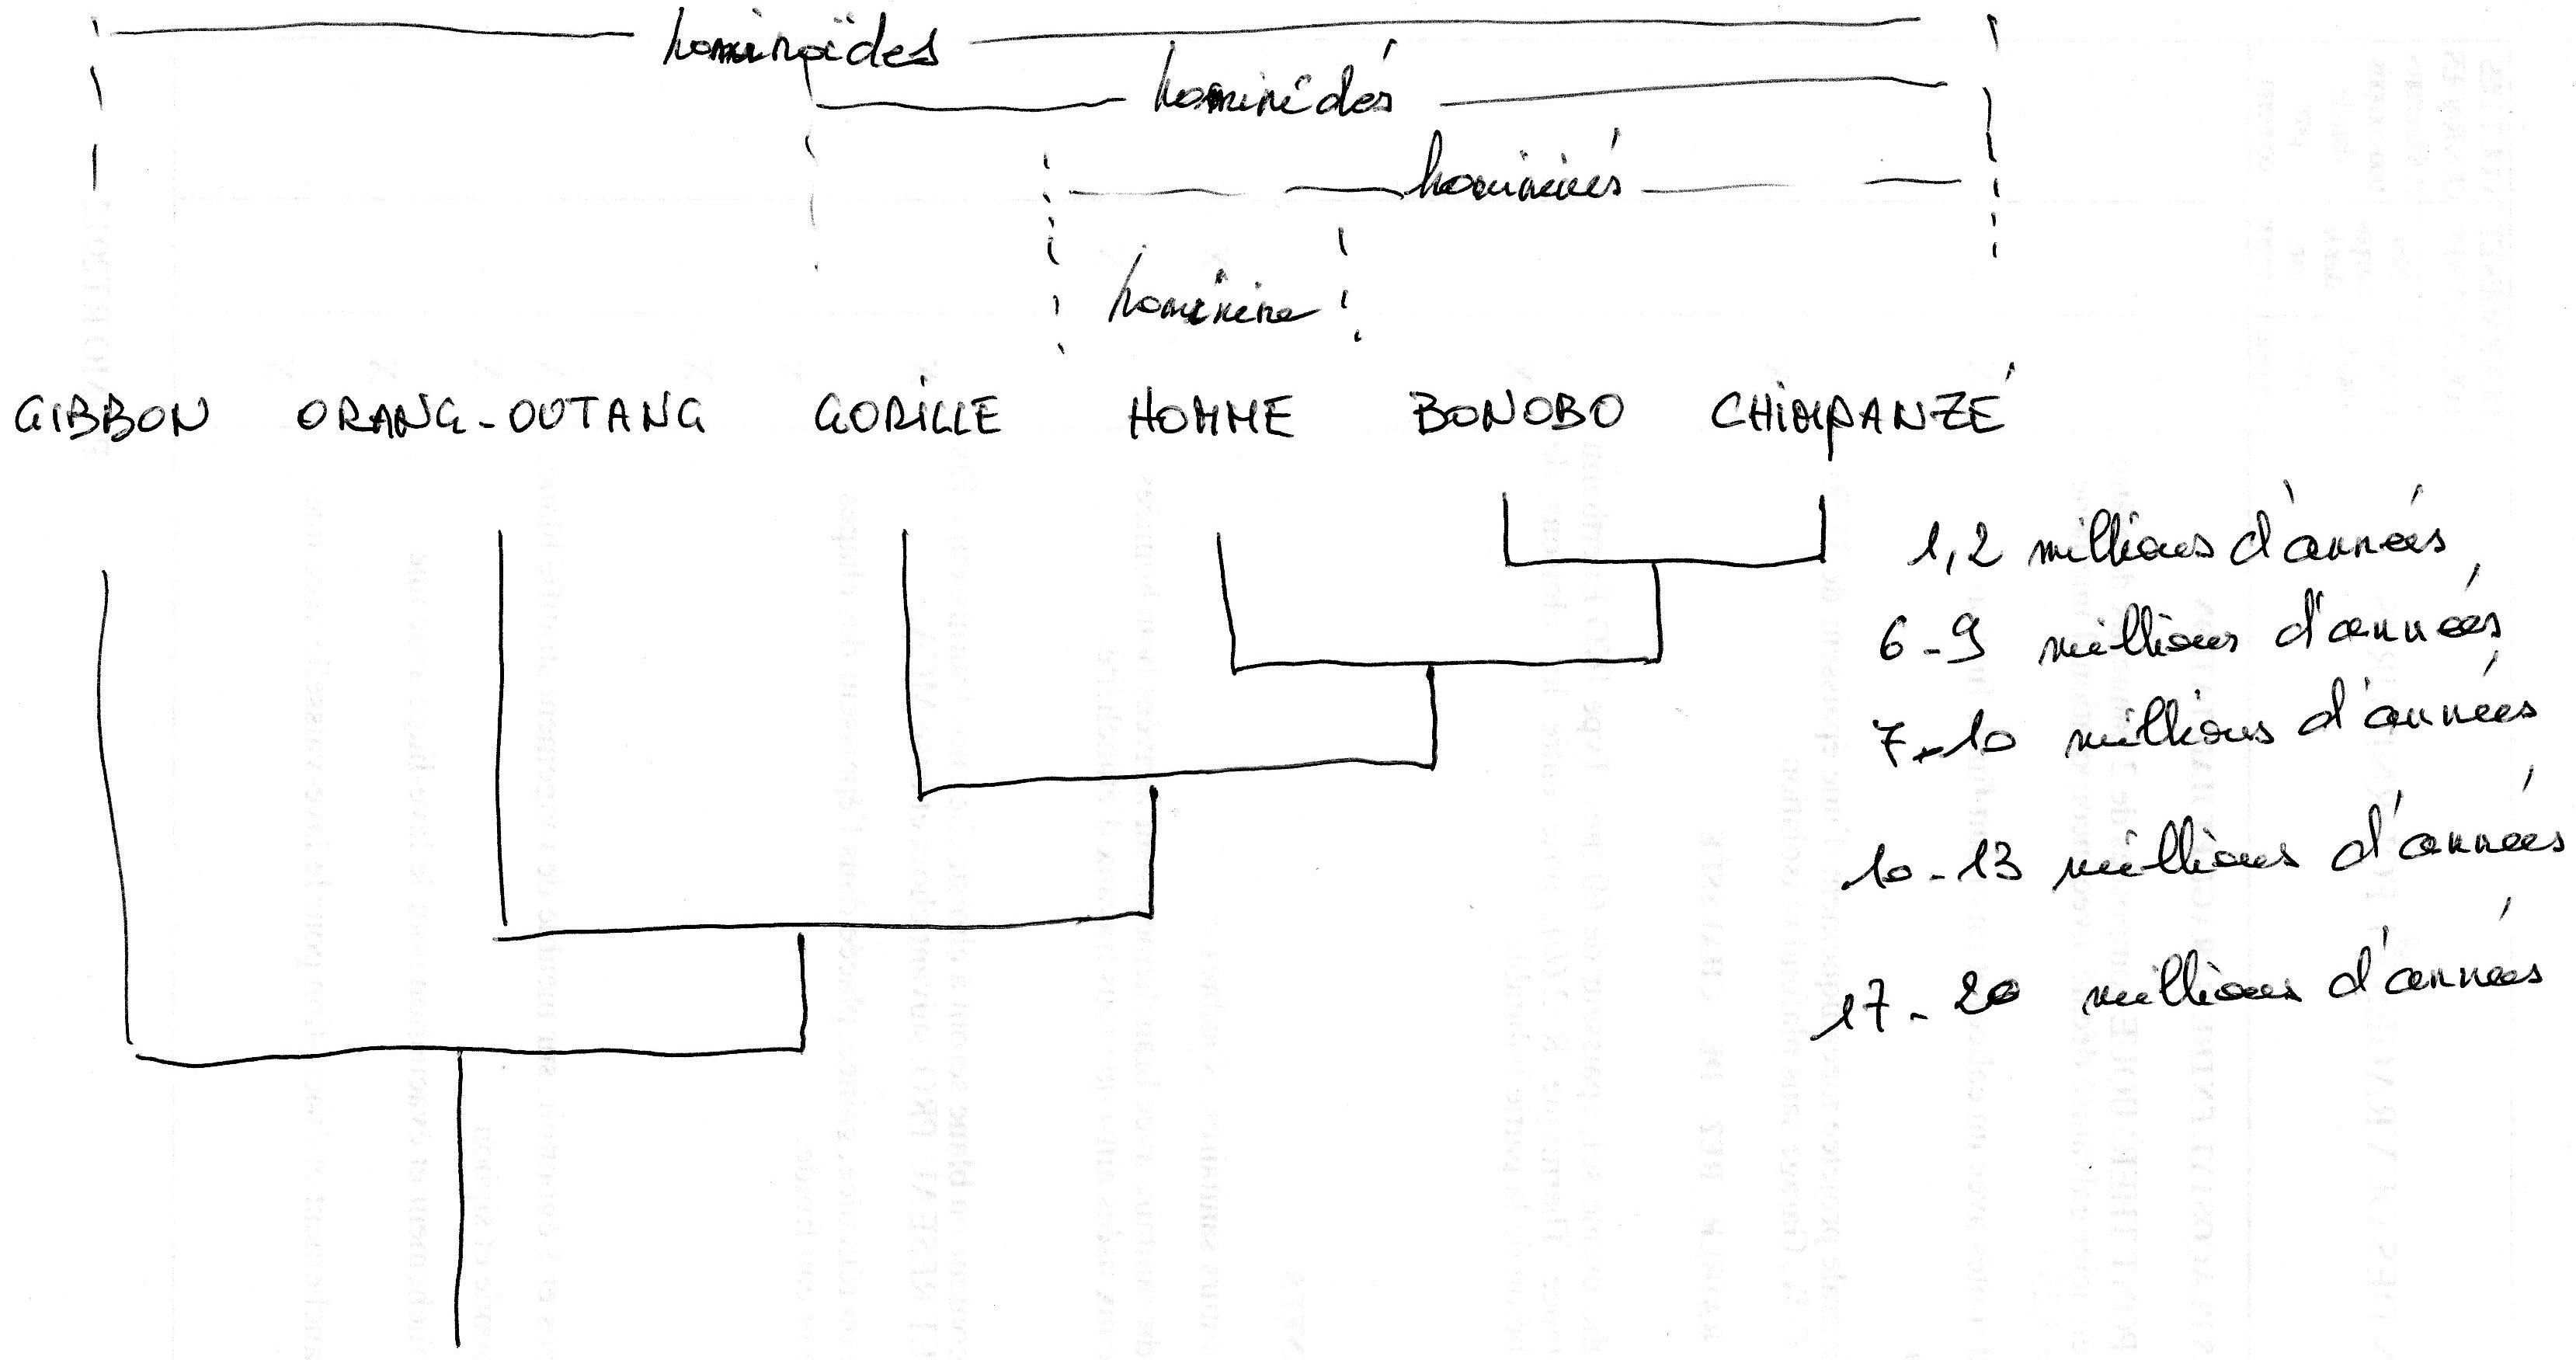 hominoïdes
hominidés
homininés
hominine
GIBBON ORANG-OUTANG GORILLE HOMME BONOBO CHIMPANZÉ
1,2 millions d'années
6-9 millions d'années
7-10 millions d'années
10-13 millions d'années
17-20 millions d'années